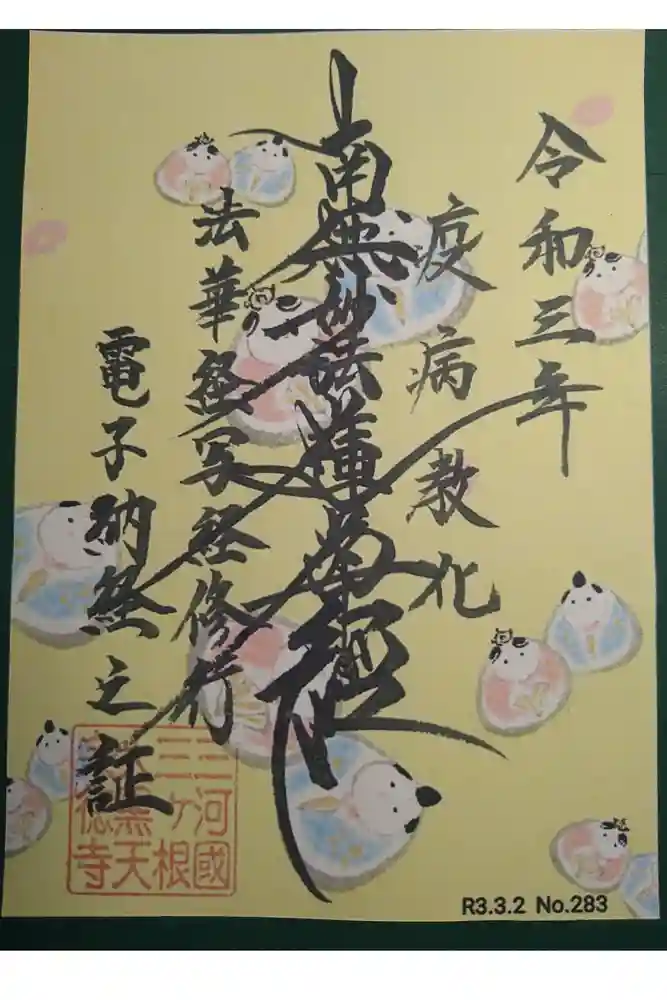 令和三年
疫病教化
南無妙法蓮華経
法華経写経修行
電子納経之証
三河國
三ヶ根
黒天
徳寺
R3.3.2 No.283